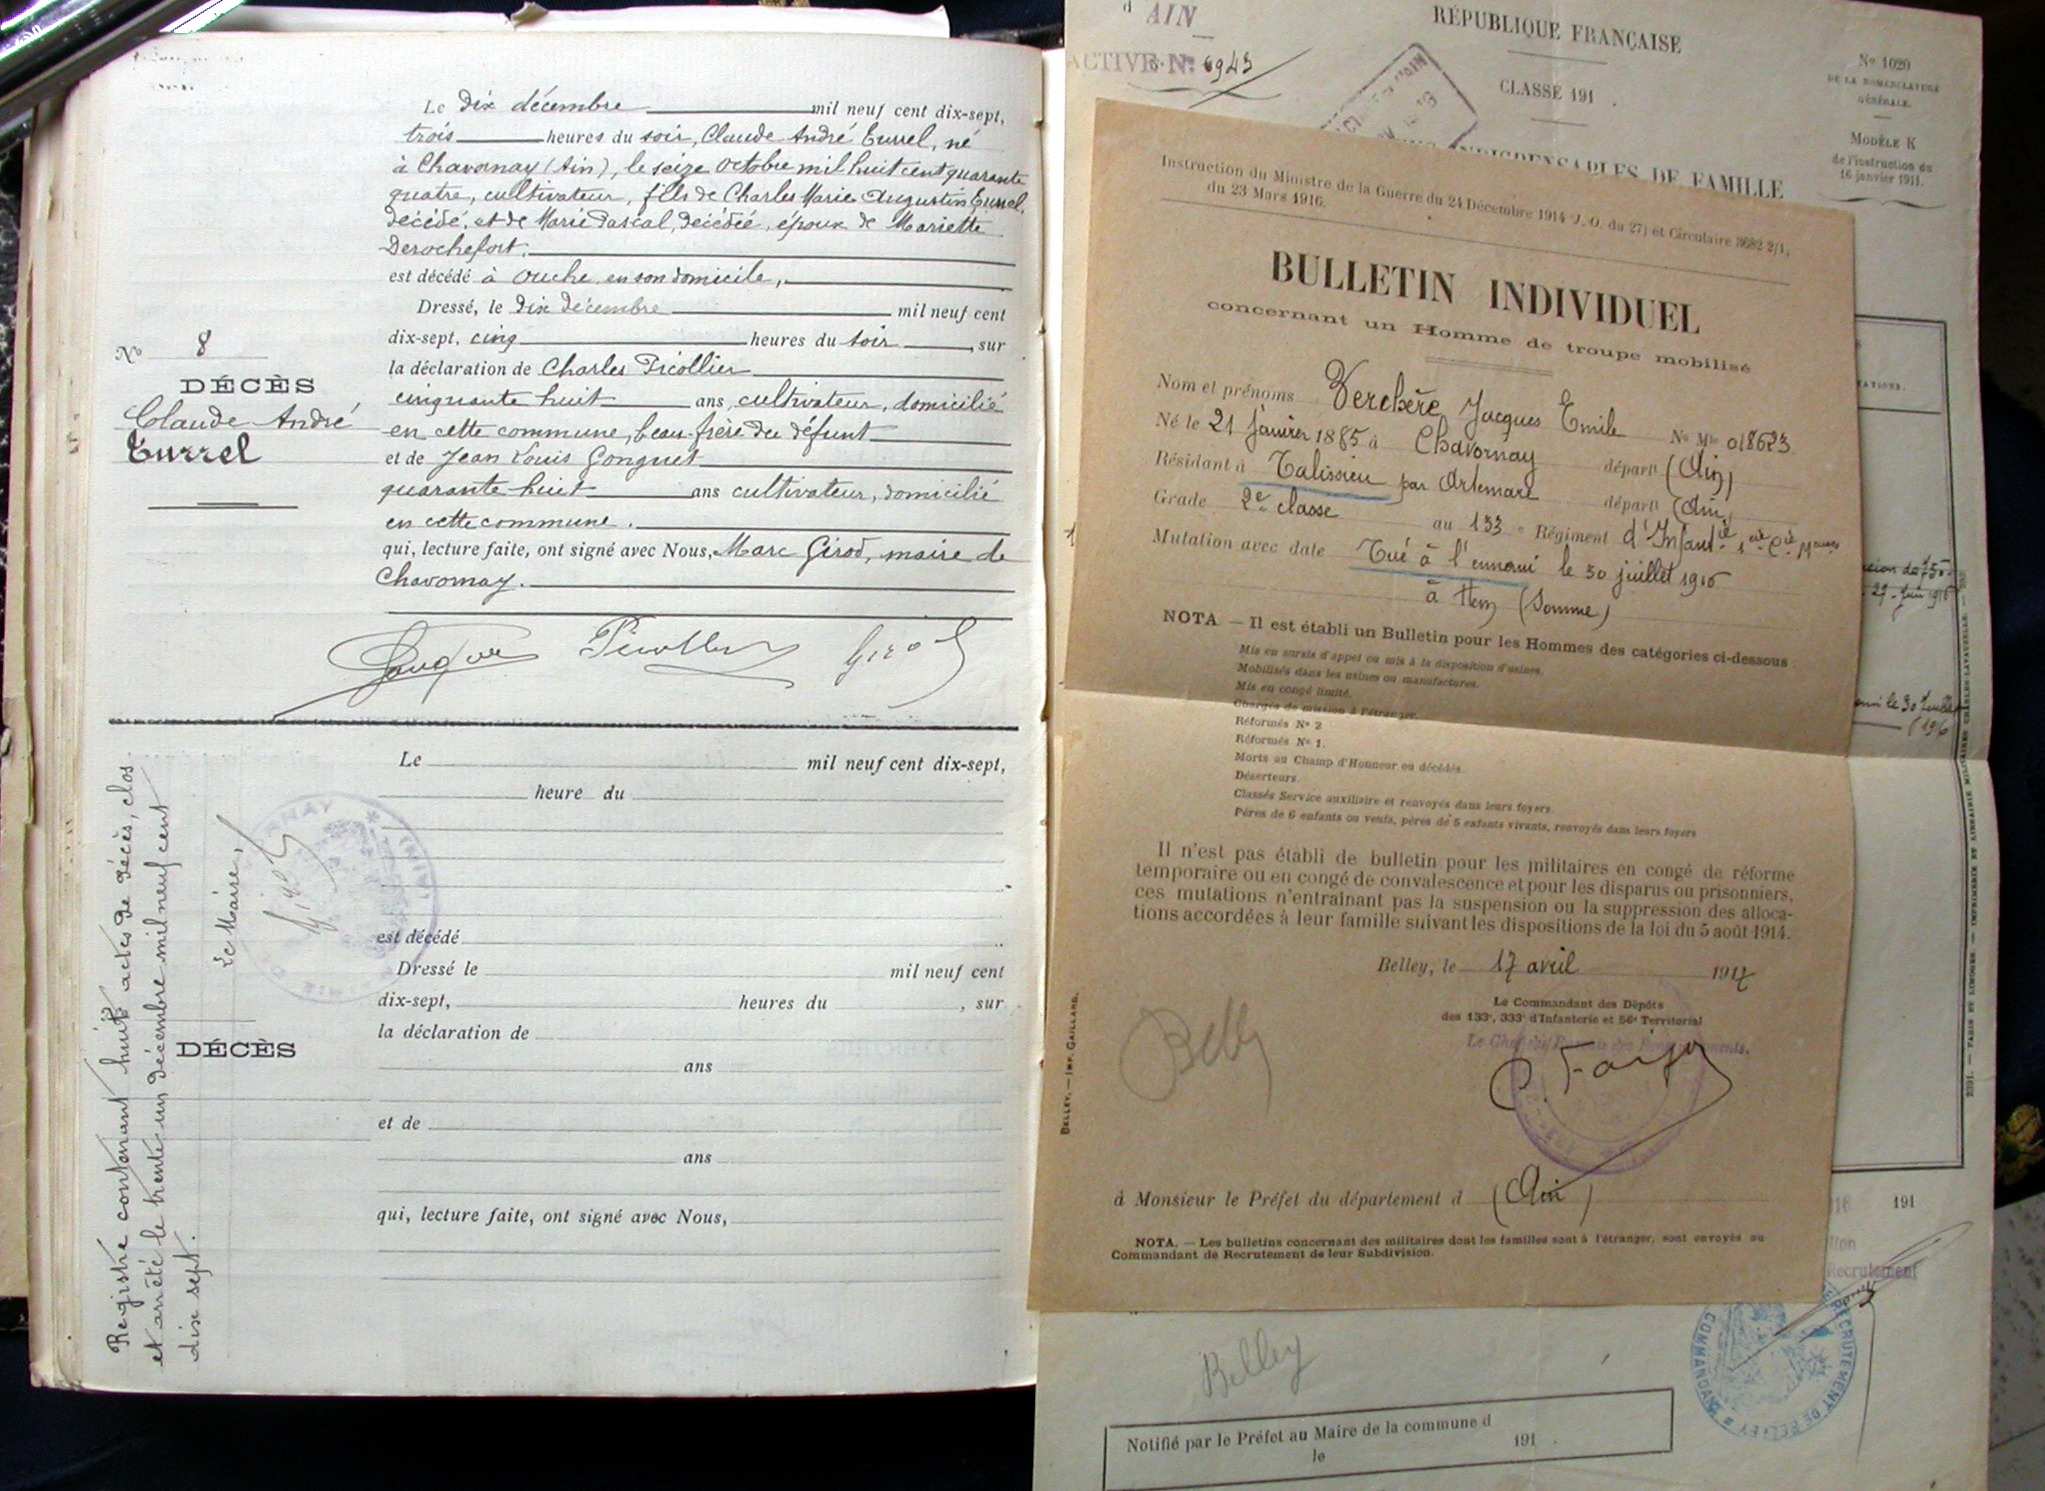 Le dix décembre mil neuf cent dix-sept,
trois heures du soir, Claude André Turrel, né
à Chavornay (Ain), le seize Octobre mil huit cent quarante
quatre, cultivateur, fils de Charles Marie Augustin Turrel,
décédé, et de Marie Pascal, décédée, époux de Mariette
Derochefort.
est décédé à Ouche, en son domicile,
Dressé, le dix décembre mil neuf cent
dix-sept, cinq heures du soir, sur
la déclaration de Charles Picollier
cinquante huit ans, cultivateur, domicilié
en cette commune, beau-frère du défunt
et de Jean Louis Gonguet
quarante huit ans cultivateur, domicilié
en cette commune.
qui, lecture faite, ont signé avec Nous, Marc Girod, maire de
Chavornay.
Picollier Girod
No 8
DÉCÈS
Claude André
Turrel
Le mil neuf cent dix-sept,
heure du
est décédé
Dressé le mil neuf cent
dix-sept, heures du , sur
la déclaration de
ans
et de
ans
qui, lecture faite, ont signé avec Nous,
DÉCÈS
Registre contenant huit actes de décès, clos
et arrêté le trente un décembre mil neuf cent
dix sept.
Le Maire,
Girod
d AIN
ACTIVE No 6943
RÉPUBLIQUE FRANÇAISE
CLASSE 191
No 1020
DE LA NOMENCLATURE
GÉNÉRALE.
MODÈLE K
de l'instruction du
16 janvier 1911.
INDISPENSABLES DE FAMILLE
Instruction du Ministre de la Guerre du 24 Décembre 1914 (J. O. du 27) et Circulaire 8682 2/1,
du 23 Mars 1916.
BULLETIN INDIVIDUEL
concernant un Homme de troupe mobilisé
Nom et prénoms Verchère Jacques Emile No Mle 018623
Né le 21 Janvier 1885 à Chavornay départt (Ain)
Résidant à Talissieu par Artemare départt (Ain)
Grade 2e classe au 133 e Régiment d'Infantie
Mutation avec date Tué à l'ennemi le 30 juillet 1916
à Hem (Somme)
NOTA — Il est établi un Bulletin pour les Hommes des catégories ci-dessous :
Mis en sursis d'appel ou mis à la disposition d'usines.
Mobilisés dans les usines ou manufactures.
Mis en congé limité.
Chargés de mission à l'étranger.
Réformés No 2
Réformés No 1.
Morts au Champ d'Honneur ou décédés.
Déserteurs.
Classés Service auxiliaire et renvoyés dans leurs foyers.
Pères de 6 enfants ou veufs, pères de 5 enfants vivants, renvoyés dans leurs foyers
Il n'est pas établi de bulletin pour les militaires en congé de réforme
temporaire ou en congé de convalescence et pour les disparus ou prisonniers,
ces mutations n'entraînant pas la suspension ou la suppression des alloca-
tions accordées à leur famille suivant les dispositions de la loi du 5 août 1914.
Belley, le 17 avril 1917
Le Commandant des Dépôts
des 133e, 333e d'Infanterie et 56e Territorial
Belley
BELLEY. — IMP. GAILLARD.
à Monsieur le Préfet du département d (Ain)
NOTA. — Les bulletins concernant des militaires dont les familles sont à l'étranger, sont envoyés au
Commandant de Recrutement de leur Subdivision.
27 Juin 1916
le 30 Juillet
1916
191
Recrutement
RECRUTEMENT DE BELLEY
COMMANDANT
Belley
Notifié par le Préfet au Maire de la commune d
le 191 .